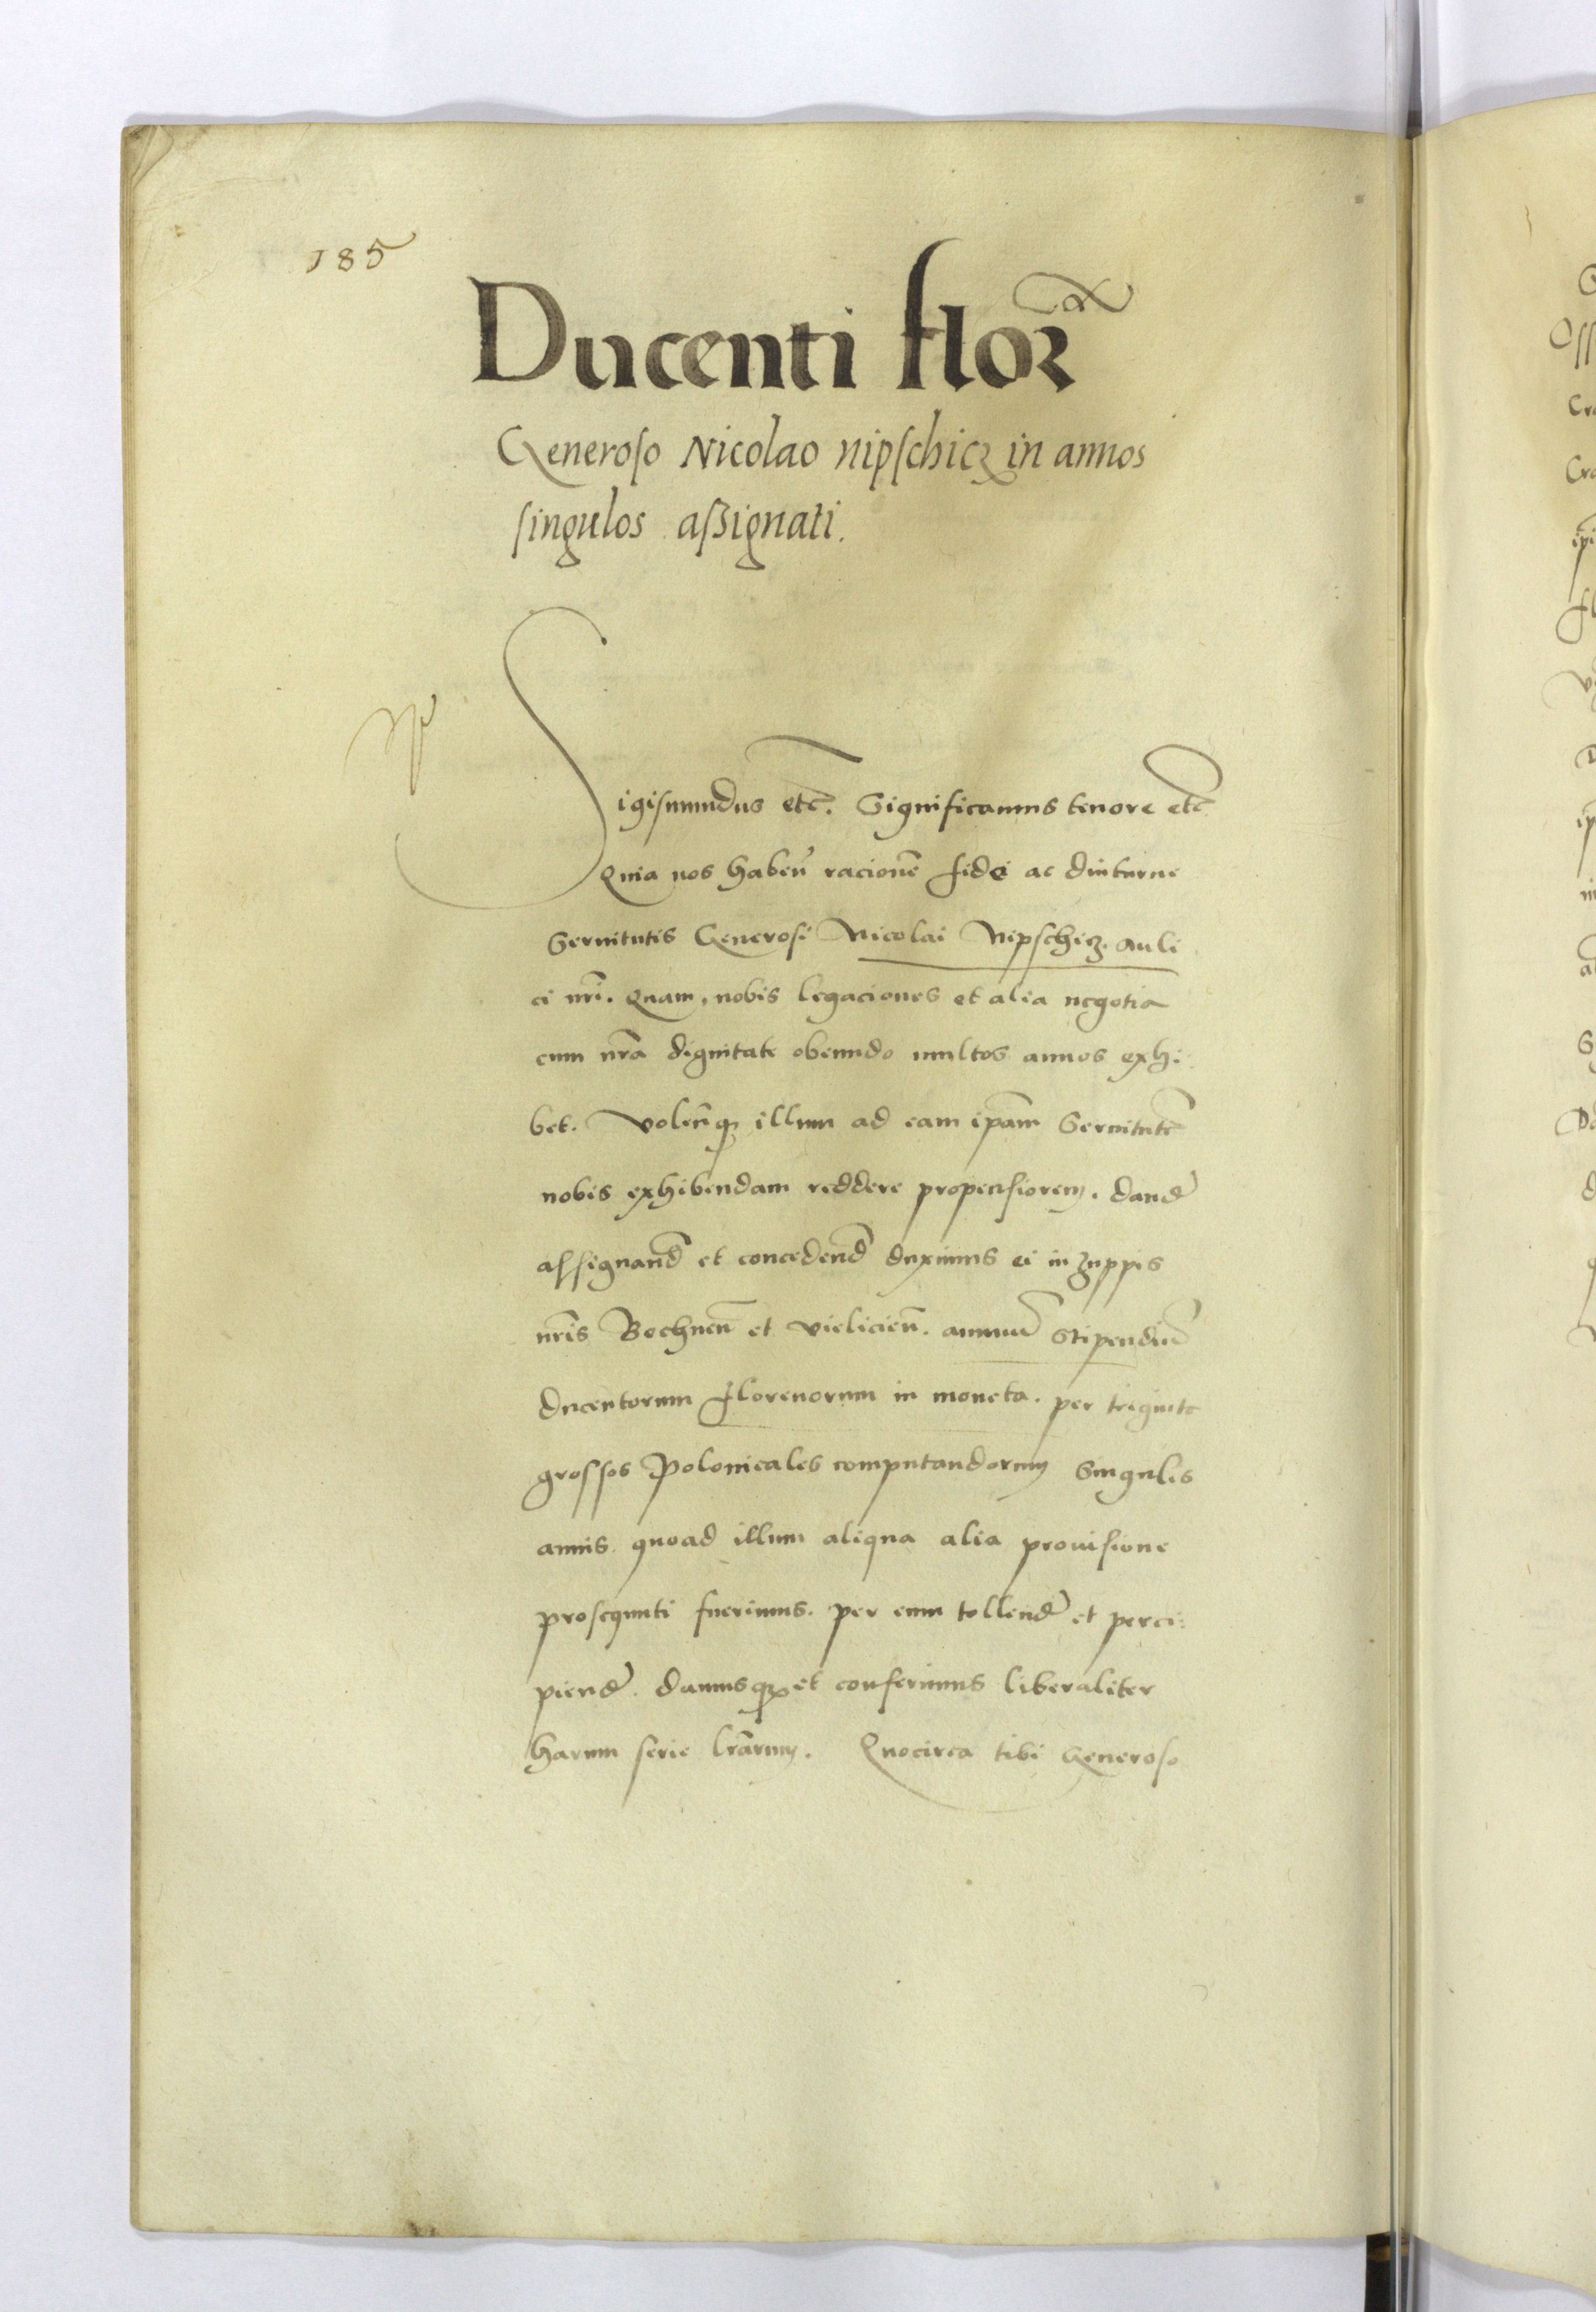 185
Ducenti flor
Generoso Nicolao Nipschicz in annos
singulos assignati.
Sigismundus etc. Significamus tenore etc
Quia nos haben racione fidei ac diuturne
Seruitutis Generosi Nicolai Nipschicz. auli
ci nri. Quam nobis legaciones et alia negotia
cum nra dignitate obeundo multos annos exhi
bet. Volenq illum ad eam ipam Seruitute
nobis exhibendam reddere propensiorem. dand
assignand et concedend duximus ei in zuppis
nris Bochnen et vielicien. annuu stipendiu
ducentorum florenorum in moneta. per triginta
grossos Polonicales computandorum Singulis
annis. quoad illum aliqua alia prouisione
prosequuti fuerimus. per eum tollend et perci
piend. damusq et conferimus liberaliter
harum serie lrarum. Quocirca tibi Generoso